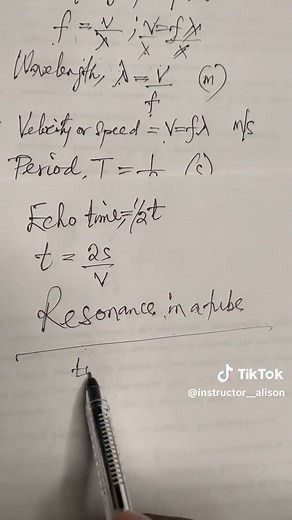 f = v/λ ; v = fλ
λ λ
Wavelength, λ = v/f (m)
Velocity or speed = v = fλ m/s
Period, T = 1/f (s)
Echo time, = 1/2 t
t = 2s/v
Resonance in a tube
TikTok
@instructor__alison